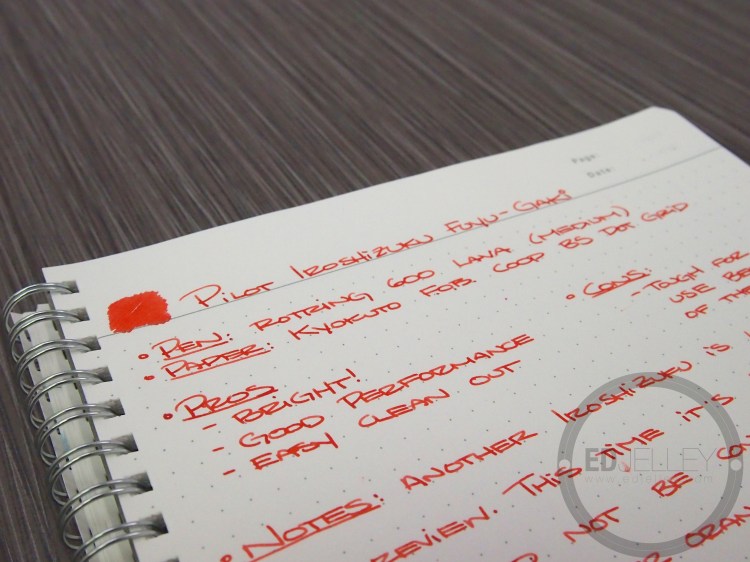 Page:
Date:
PILOT IROSHIZUKU FUYU-GAKI
• PEN: ROTRING 600 LAVA (MEDIUM)
• PAPER: KYOKUTO F.O.B. COOP B5 DOT GRID
• PROS
- BRIGHT!
- GOOD PERFORMANCE
- EASY CLEAN OUT
• CONS:
- TOUGH FOR
USE
OF
• NOTES: ANOTHER IROSHIZUKU IS
REVIEW. THIS TIME IT'S
NOT BE
ED JELLEY
www.edjelley.com